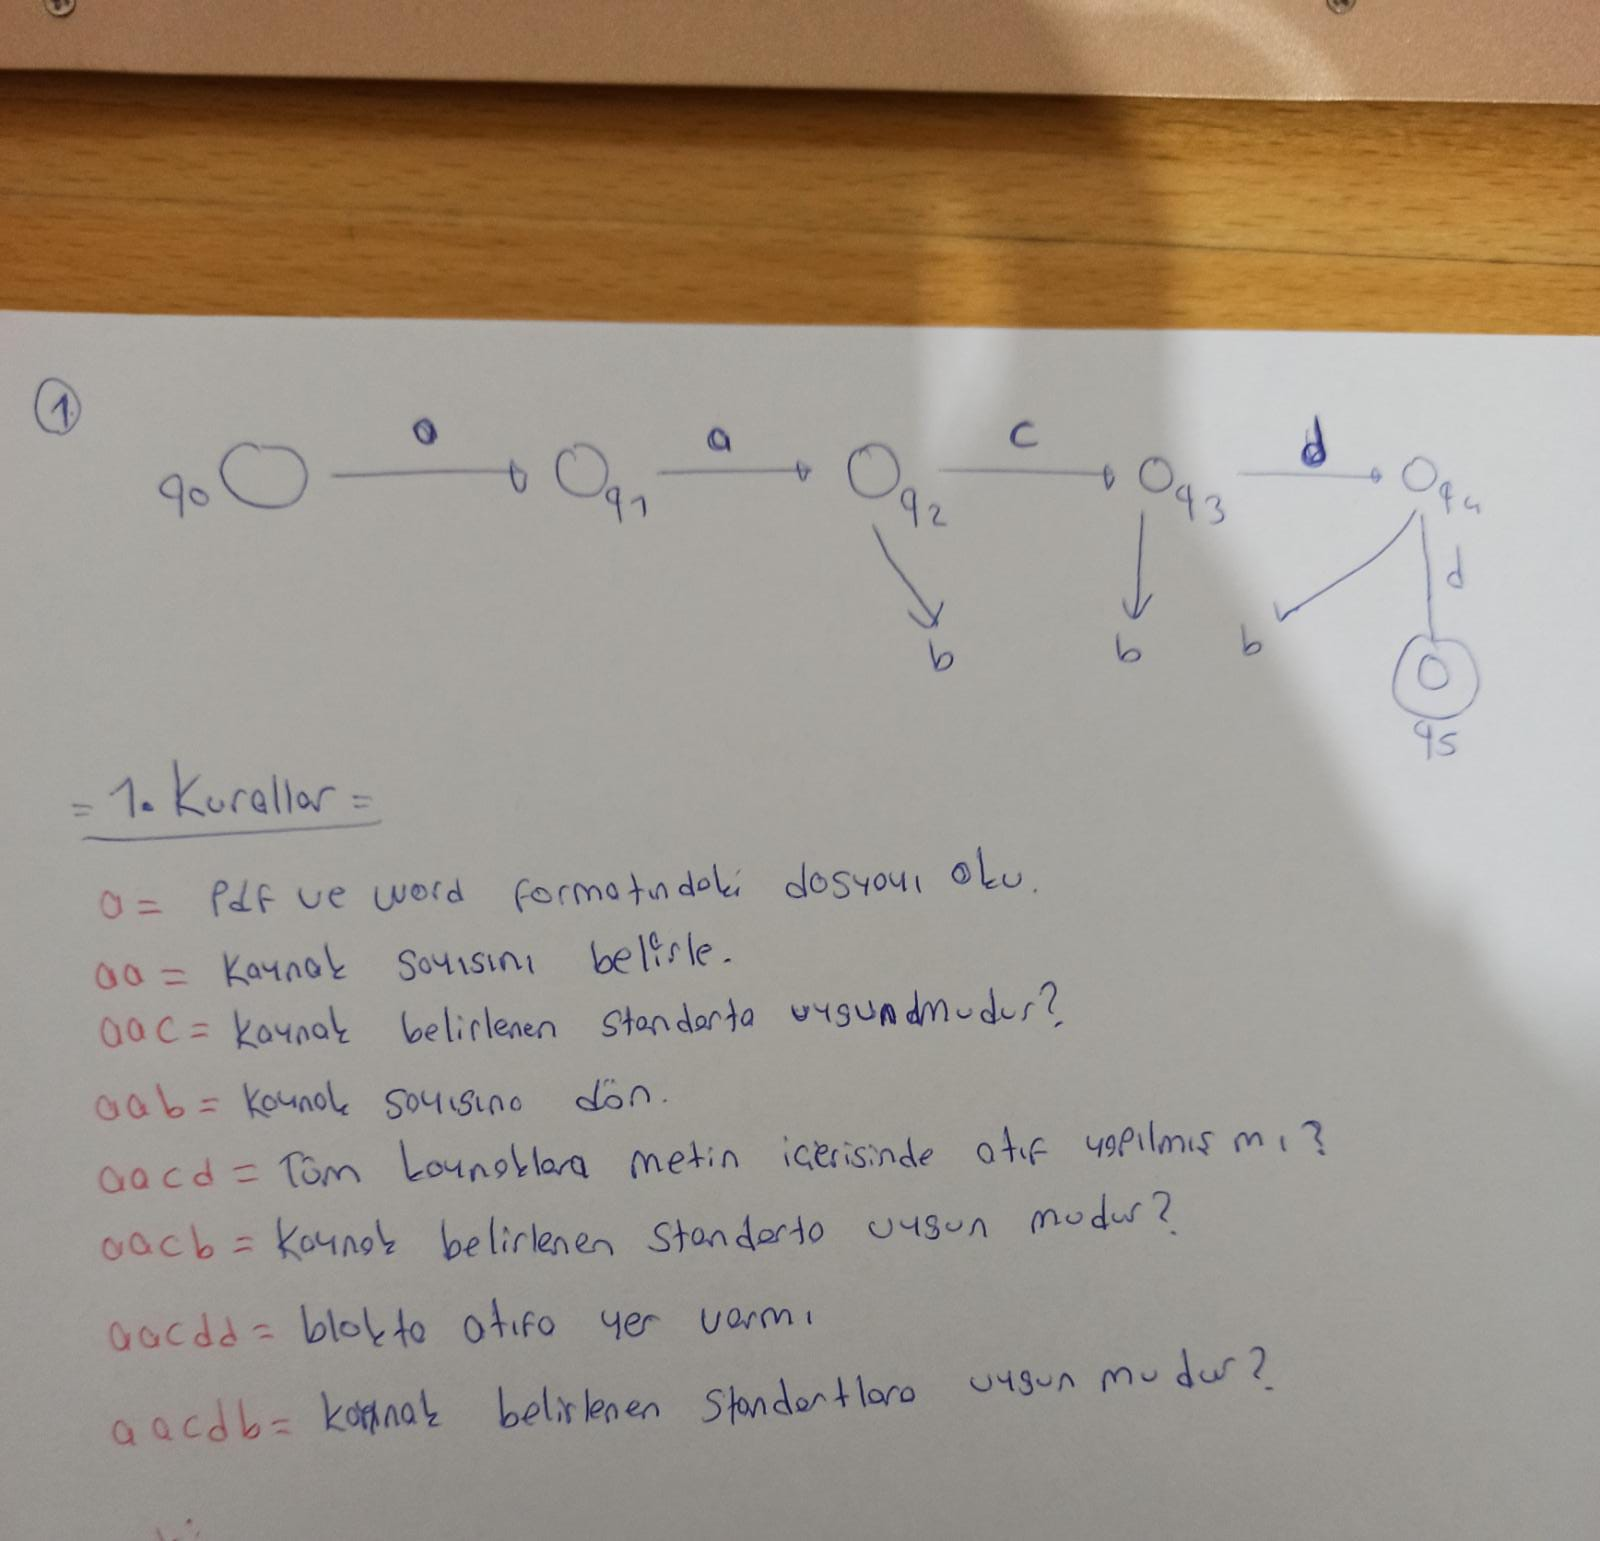 1
a a c d
q0 q1 q2 q3 q4
d
b b b
q5
= 1. Kurallar =
a = Pdf ve word formatındaki dosyayı oku.
aa = Kaynak sayısını belirle.
aac = Kaynak belirlenen standarta uygundmudur?
aab = Kaynak sayısına dön.
aacd = Tüm kaynaklara metin içerisinde atıf yapılmış mı?
aacb = Kaynak belirlenen standarta uygun mudur?
aacdd = blokta atıfa yer varmı
aacdb = kaynak belirlenen standartlara uygun mudur?